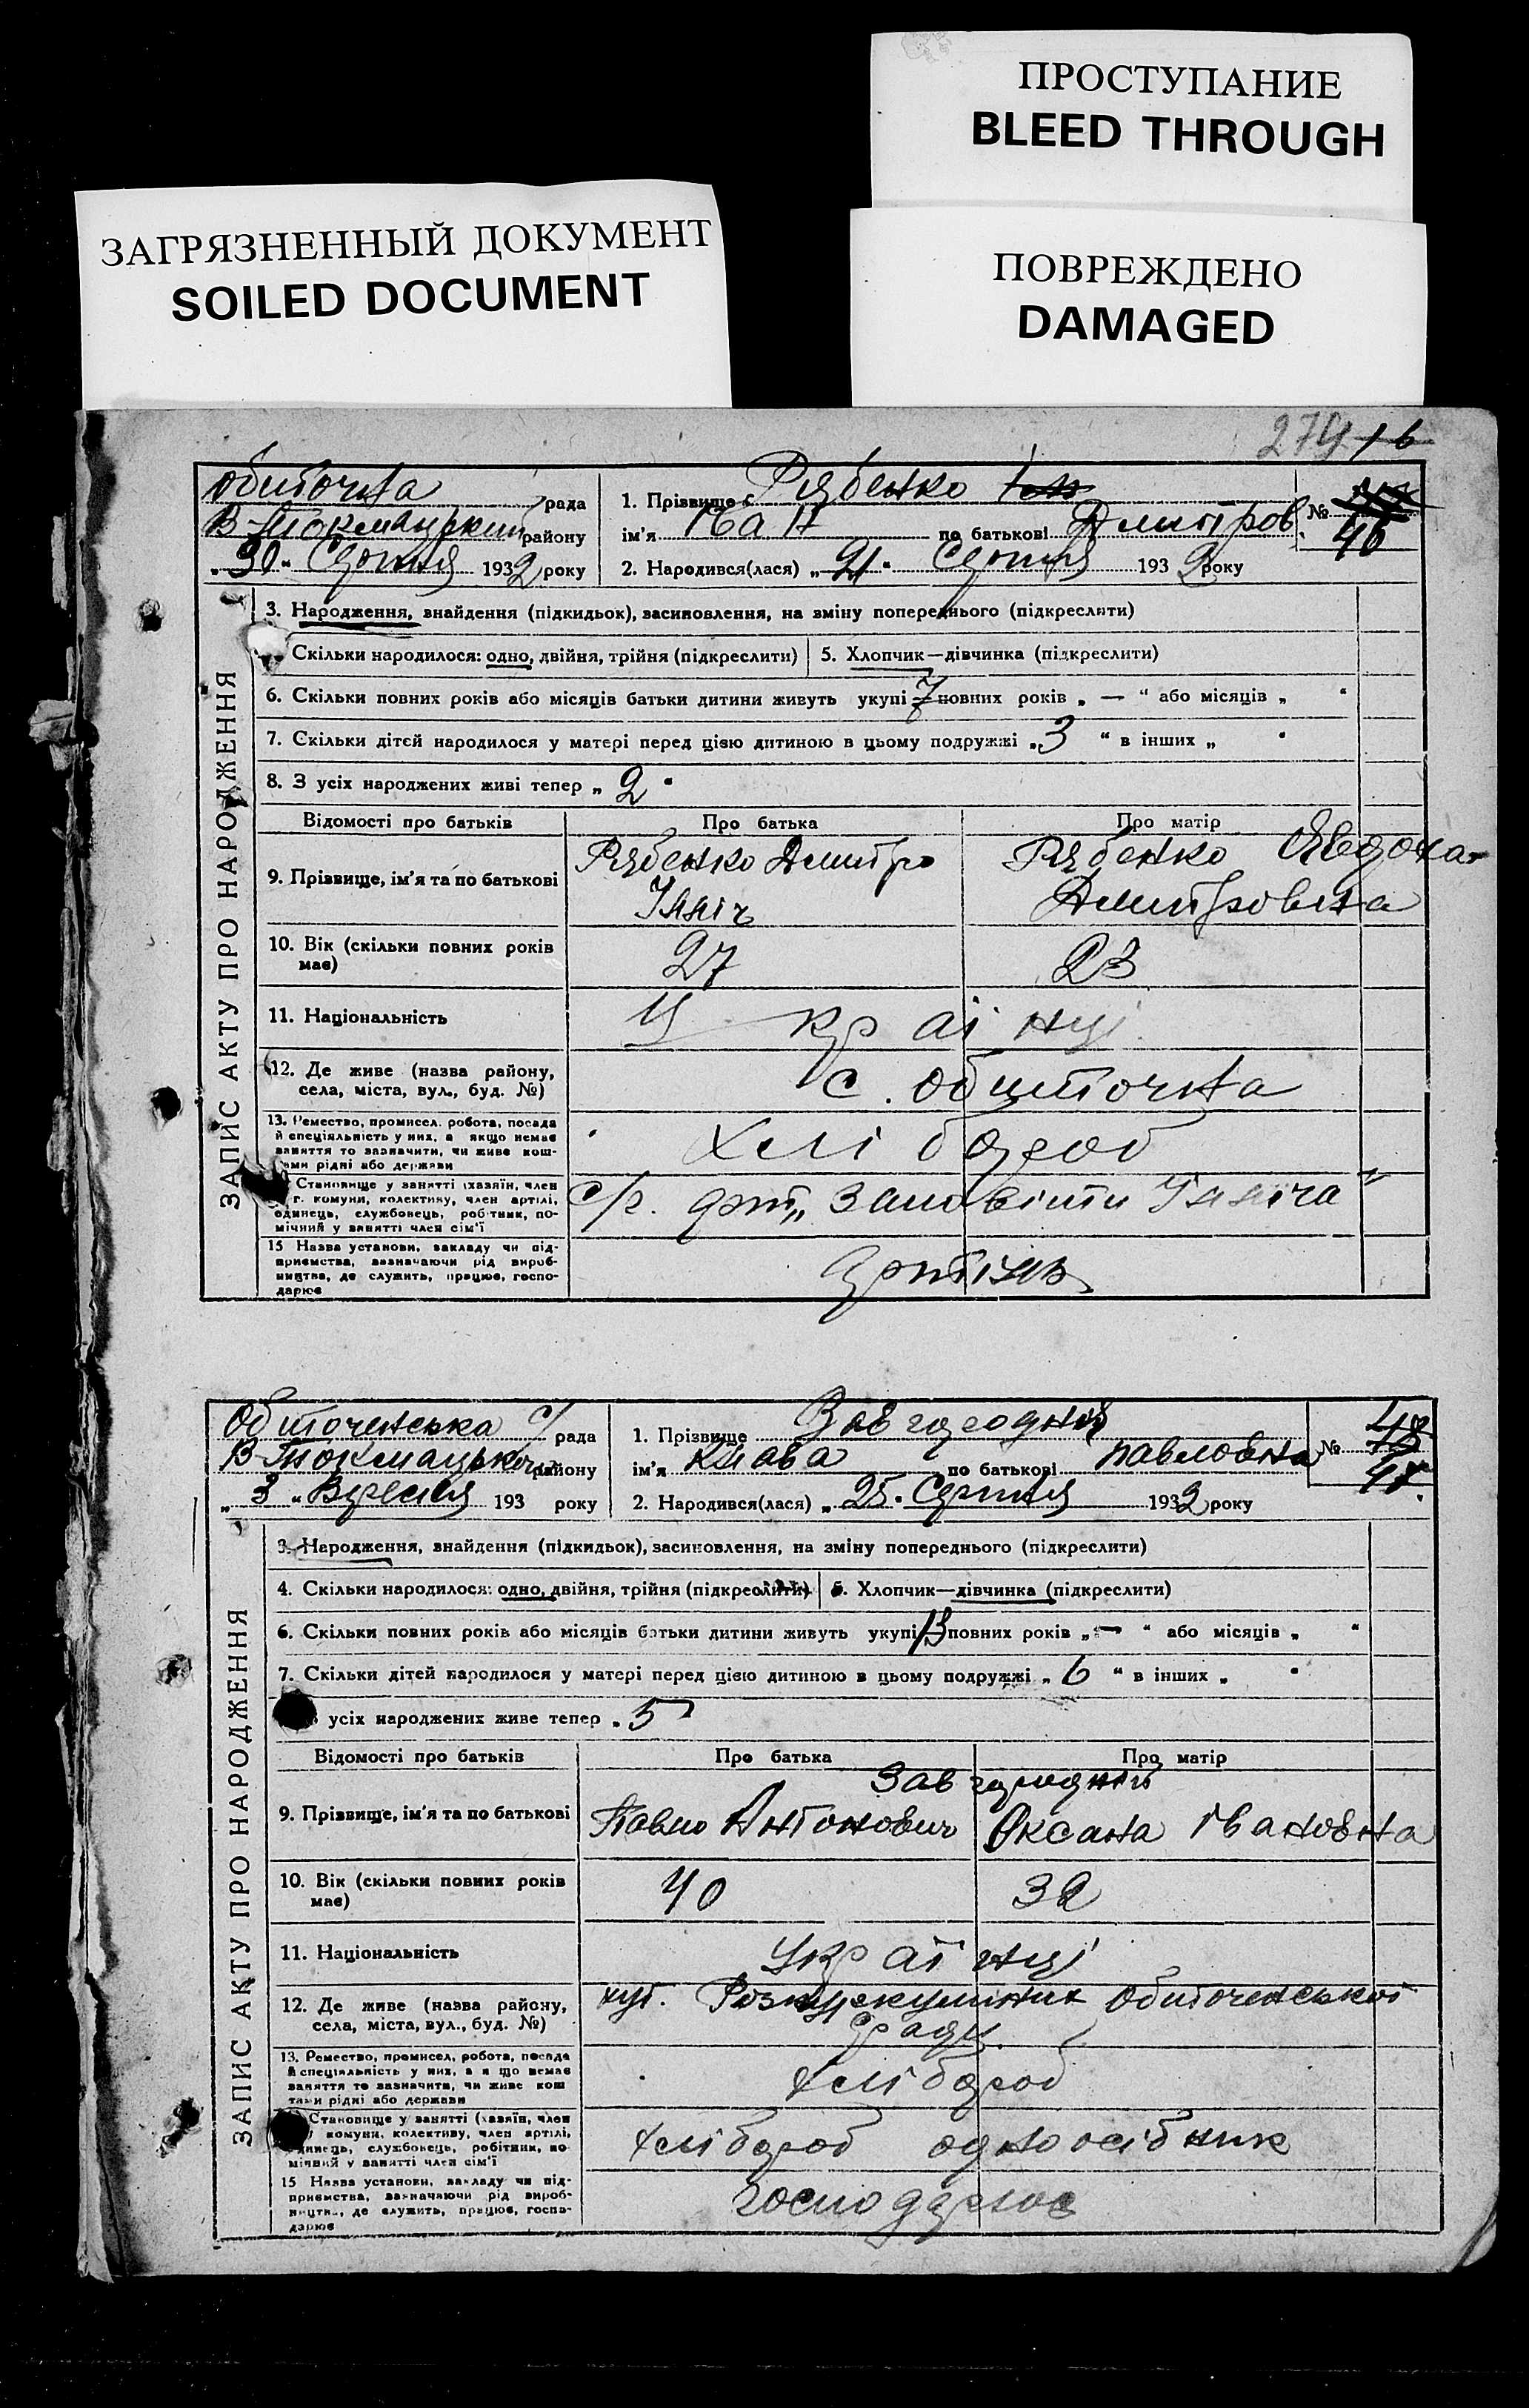 ПРОСТУПАНИЕ
BLEED THROUGH
ЗАГРЯЗНЕННЫЙ ДОКУМЕНТ
SOILED DOCUMENT
ПОВРЕЖДЕНО
DAMAGED
274 16
Обиточна рада
В-Токмацький району
„30“ Серпня 1932 року
1. Прізвище Рябенко
ім'я Іван по батькові Дмитров.
2. Народився(лася) „21“ Серпня 1932 року
№ 46
ЗАПИС АКТУ ПРО НАРОДЖЕННЯ
3. Народження, знайдення (підкидьок), засиновлення, на зміну попереднього (підкреслити)
Скільки народилося: одно, двійня, трійня (підкреслити)
5. Хлопчик—дівчинка (підкреслити)
6. Скільки повних років або місяців батьки дитини живуть укупі 7 повних років „ — “ або місяців „ “
7. Скільки дітей народилося у матері перед цією дитиною в цьому подружжі „3 “ в інших „ “
8. З усіх народжених живі тепер „ 2 “
Відомості про батьків Про батька Про матір
9. Прізвище, ім'я та по батькові
Рябенко Дмитро
Рябенко Явдоха
Дмитровна
10. Вік (скільки повних років має)
27 23
11. Національність
Українці
12. Де живе (назва району, села, міста, вул., буд. №)
с. Обиточна
13. Ремество, промисел. робота, посада й спеціяльність у них, а якщо немає заняття то зазначити, чи живе кош-
ами рідні або держави
Хлібороб
Становище у занятті (хазяїн, член
г. комуни, колективу, член артілі,
одинець, службовець, робітник, по-
мічний у занятті член сім'ї
с/г. арт „Заповіти Ілліча“
15 Назва установи, закладу чи під-
приємства, зазначаючи рід вироб-
ництва, де служить, працює, госпо-
дарює
Артіль
Обиточенська с/рада
В-Токмацького району
„ 3 “ Вресня 193 року
1. Прізвище Завгородній
ім'я Клава по батькові Павловна
2. Народився(лася) „25“ Серпня 1932 року
№ 47
ЗАПИС АКТУ ПРО НАРОДЖЕННЯ
3. Народження, знайдення (підкидьок), засиновлення, на зміну попереднього (підкреслити)
4. Скільки народилося: одно, двійня, трійня (підкреслити)
5. Хлопчик—дівчинка (підкреслити)
6. Скільки повних років або місяців батьки дитини живуть укупі 13 повних років „ — “ або місяців „ “
7. Скільки дітей народилося у матері перед цією дитиною в цьому подружжі „ 6 “ в інших „ “
усіх народжених живе тепер „ 5 “
Відомості про батьків Про батька Про матір
Завгородній
9. Прізвище, ім'я та по батькові
Павло Антонович Оксана Івановна
10. Вік (скільки повних років має)
40 32
11. Національність
Українці
12. Де живе (назва району, села, міста, вул., буд. №)
хут. Обиточенської
с/ради
13. Ремество, промисел, робота, посада й спеціяльність у них, а якщо немає заняття то зазначити, чи живе кош
тами рідні або держави
Хлібороб
Становище у занятті (хазяїн, член
комуни, колективу, член артілі,
динець, службовець, робітник, по-
мічний у занятті член сім'ї
Хлібороб одноосібник
15 Назва установи, закладу чи під-
приємства, зазначаючи рід вироб-
ництва, де служить, працює, госпо-
дарює
господарює